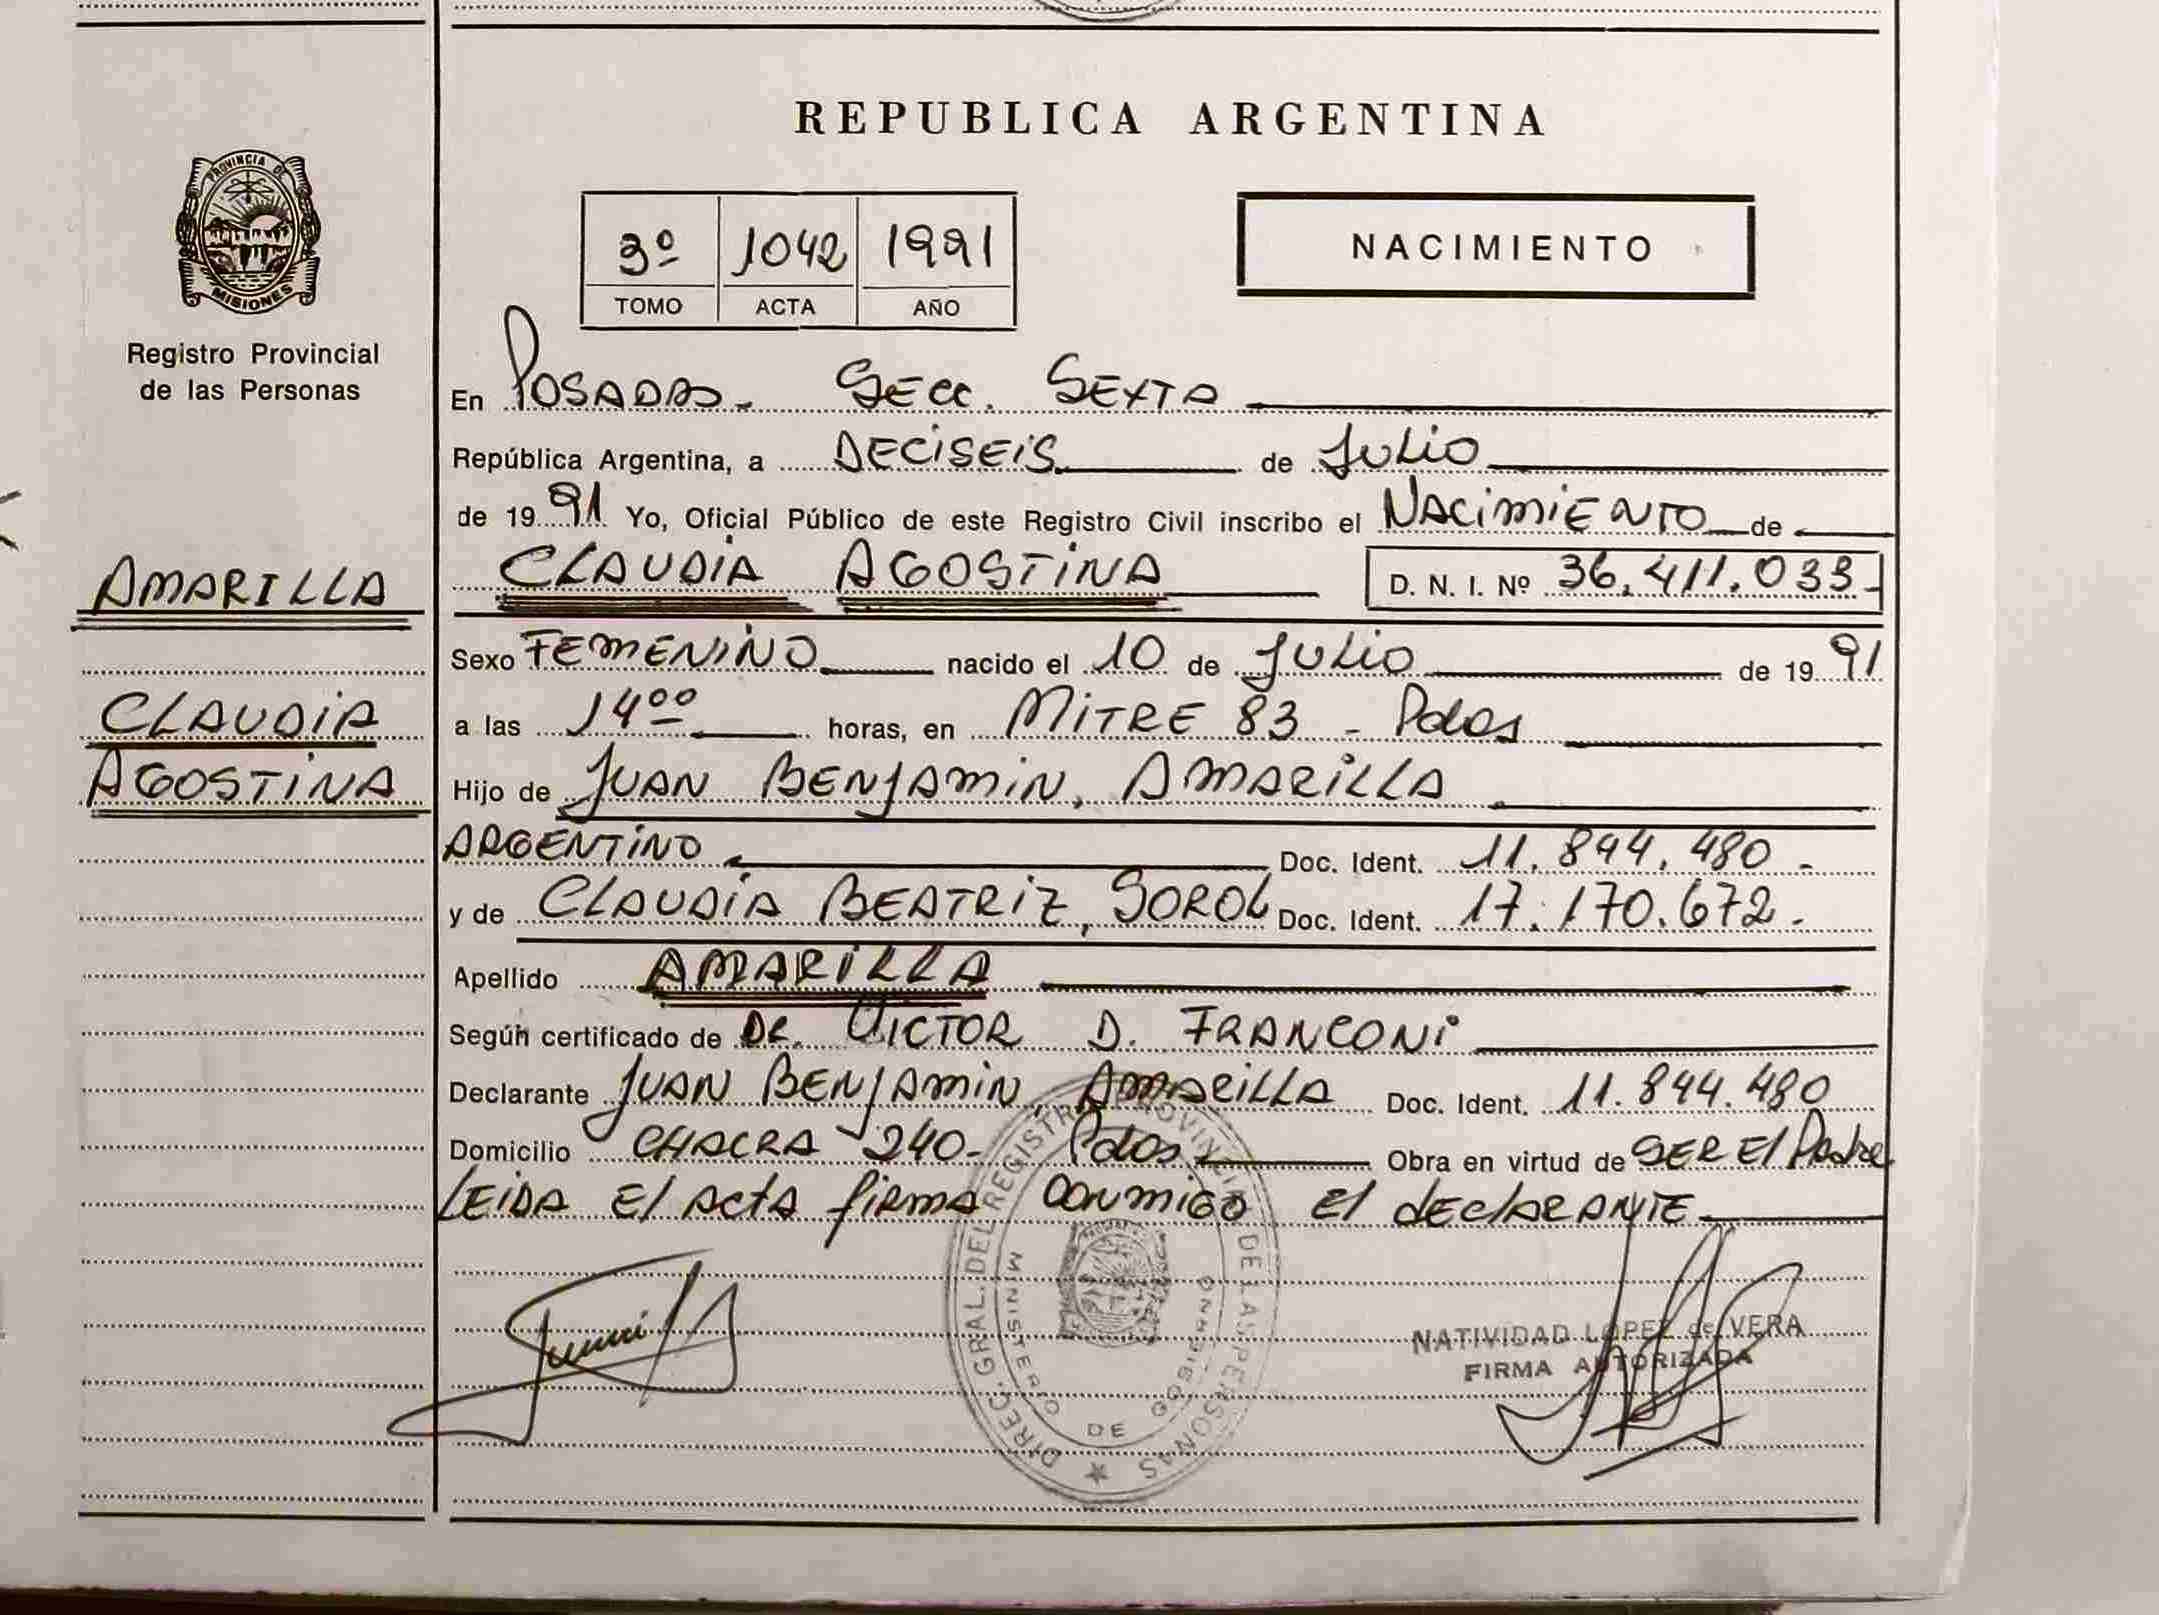 REPUBLICA ARGENTINA
PROVINCIA DE
MISIONES
Registro Provincial
de las Personas
3º 1042 1991
TOMO ACTA AÑO
NACIMIENTO
En POSADAS. SECC. SEXTA
República Argentina, a DECISEIS de JULIO
de 1991 Yo, Oficial Público de este Registro Civil inscribo el NACIMIENTO de
CLAUDIA AGOSTINA D. N. I. Nº 36.411.033
AMARILLA
CLAUDIA
AGOSTINA
Sexo FEMENINO nacido el 10 de JULIO de 1991
a las 14⁰⁰ horas, en MITRE 83 - Pdas
Hijo de JUAN BENJAMIN, AMARILLA
ARGENTINO Doc. Ident. 11.844.480 -
y de CLAUDIA BEATRIZ, SOROL Doc. Ident. 17.170.672.
Apellido AMARILLA
Según certificado de DR. VICTOR D. FRANCONI
Declarante JUAN BENJAMIN, AMARILLA Doc. Ident. 11.844.480
Domicilio CHACRA 240- Pdas Obra en virtud de SER El Padre
LEIDA El ACTA firma CONMIGO El dEClARANTE
DIREC. GRAL. DEL REGISTRO PROVINCIAL DE LAS PERSONAS
MINISTERIO DE GOBIERNO
NATIVIDAD LOPEZ de VERA
FIRMA AUTORIZADA